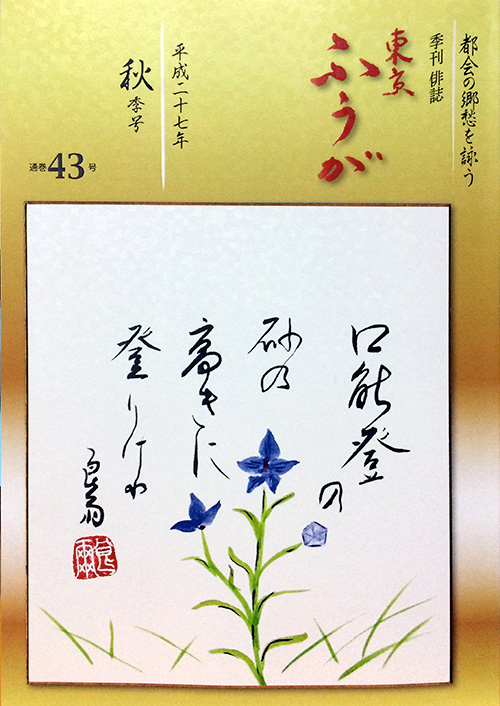 都会の郷愁を詠う
季刊 俳誌
東京
ふうが
平成二十七年
秋季号
通巻43号
口能登の
砂の
高きに
登りけり